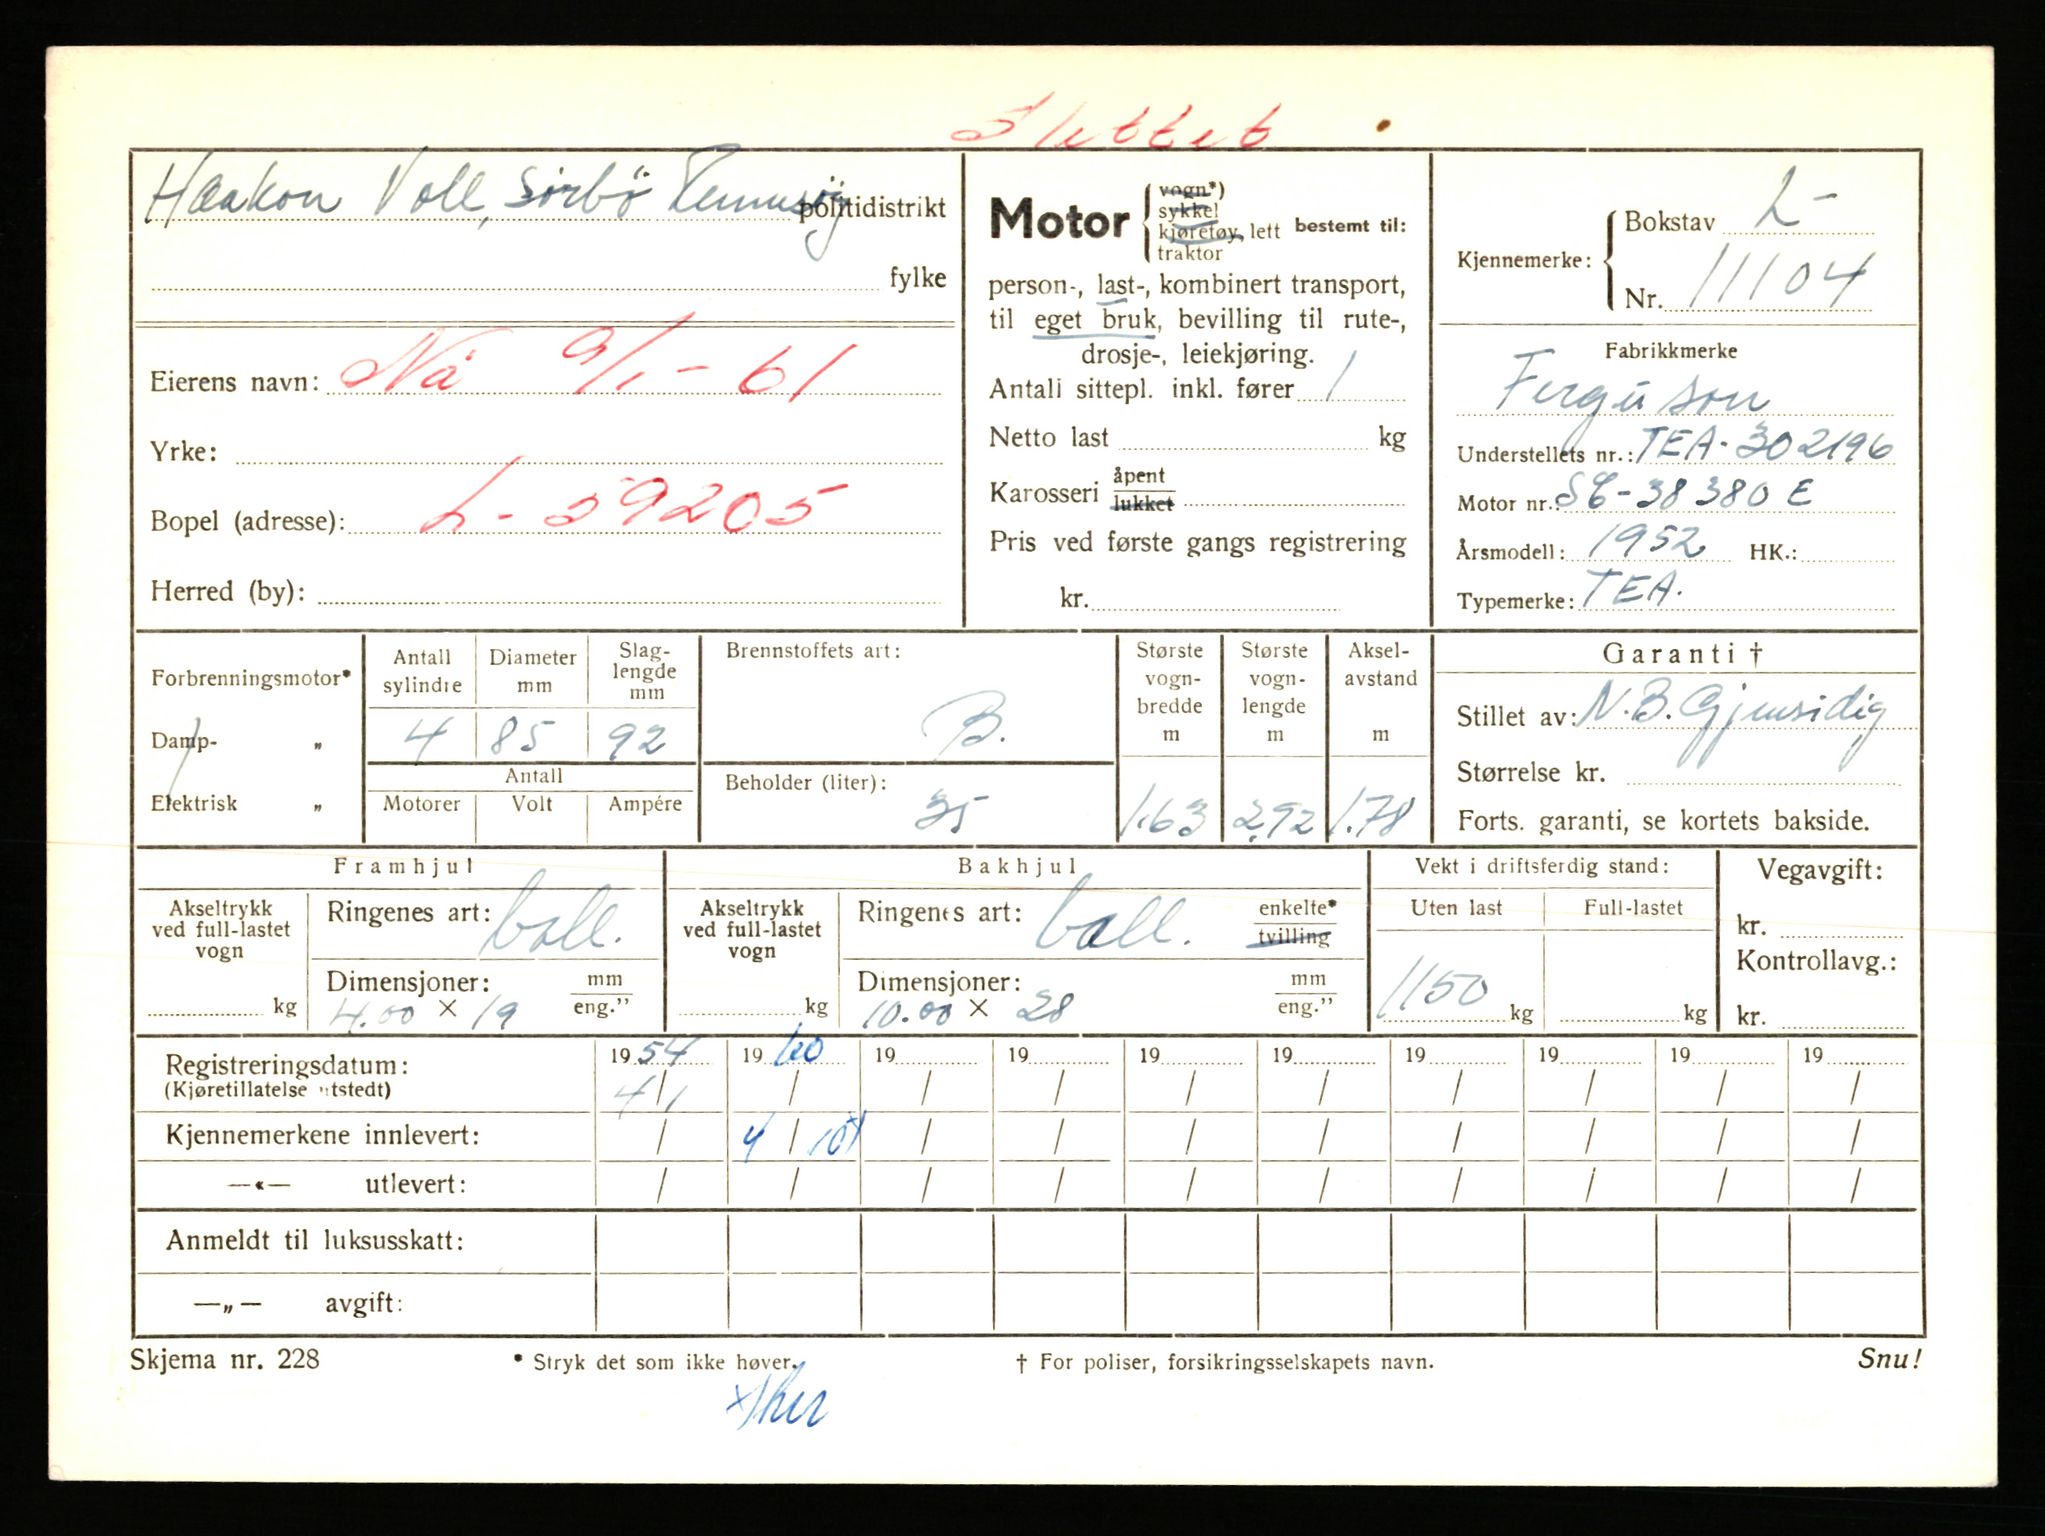 Slettet
Haakon Voll, Sörbö Rennesøy politidistrikt
fylke
Eierens navn: Nå 9/1-61
Yrke:
Bopel (adresse): L-59205
Herred (by):
Motor { vogn*) sykkel kjøretøy, lett traktor bestemt til:
person-, last-, kombinert transport,
til eget bruk, bevilling til rute-,
drosje-, leiekjøring.
Antall sittepl. inkl. fører 1
Netto last kg
Karosseri åpent lukket
Pris ved første gangs registrering
kr.
Kjennemerke: { Bokstav L-
Nr. 11104
Fabrikkmerke
Ferguson
Understellets nr.: TEA-302196
Motor nr.: SE-38380 E
Årsmodell: 1952 HK.:
Typemerke: TEA.
Forbrenningsmotor*
Damp- „
Elektrisk „
Antall sylindre Diameter mm Slaglengde mm
4 85 92
Antall
Motorer Volt Ampére
Brennstoffets art:
B.
Beholder (liter):
35
Største vogn-bredde m 1.63
Største vogn-lengde m 2.92
Aksel-avstand m 1.78
Garanti †
Stillet av: N.B. Gjensidig
Størrelse kr.
Forts. garanti, se kortets bakside.
Framhjul
Akseltrykk ved full-lastet vogn kg
Ringenes art: ball.
Dimensjoner: mm eng."
4.00 × 19
Bakhjul
Akseltrykk ved full-lastet vogn kg
Ringenes art: ball. enkelte* tvilling
Dimensjoner: mm eng."
10.00 × 28
Vekt i driftsferdig stand:
Uten last Full-lastet
1150 kg kg
Vegavgift:
kr.
Kontrollavg.:
kr.
Registreringsdatum: 1954 1960 19 19 19 19 19 19 19 19
(Kjøretillatelse utstedt) 4/1 / / / / / / / / /
Kjennemerkene innlevert: / 4/10 x) / / / / / / / /
—«— utlevert: / / / / / / / / / /
Anmeldt til luksusskatt:
—„— avgift:
Skjema nr. 228 * Stryk det som ikke høver. † For poliser, forsikringsselskapets navn. Snu!
x) her